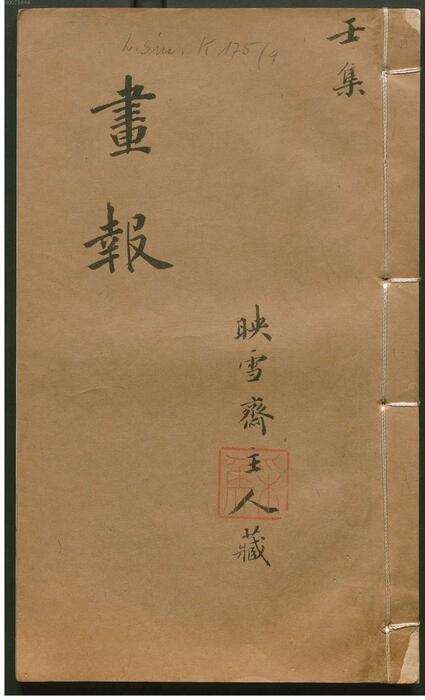 壬集
L. sin. K 175/9
畫報
映雪齋主人藏